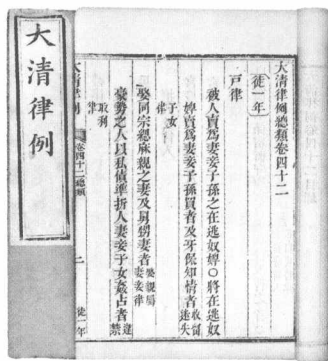 大清律例總類卷四十二
徒一年
戶律
被人賣爲妻妾子孫之在逃奴婢〇將在逃奴
婢賣爲妻妾子孫買者及牙保知情者收留迷失
子女律
娶同宗緦麻親之妻及舅甥妻者娶親屬妻妾律
豪勢之人以私債準折人妻妾子女姦占者違禁
取利律
大清律例
卷四十二總類
二
徒一年
大清律例